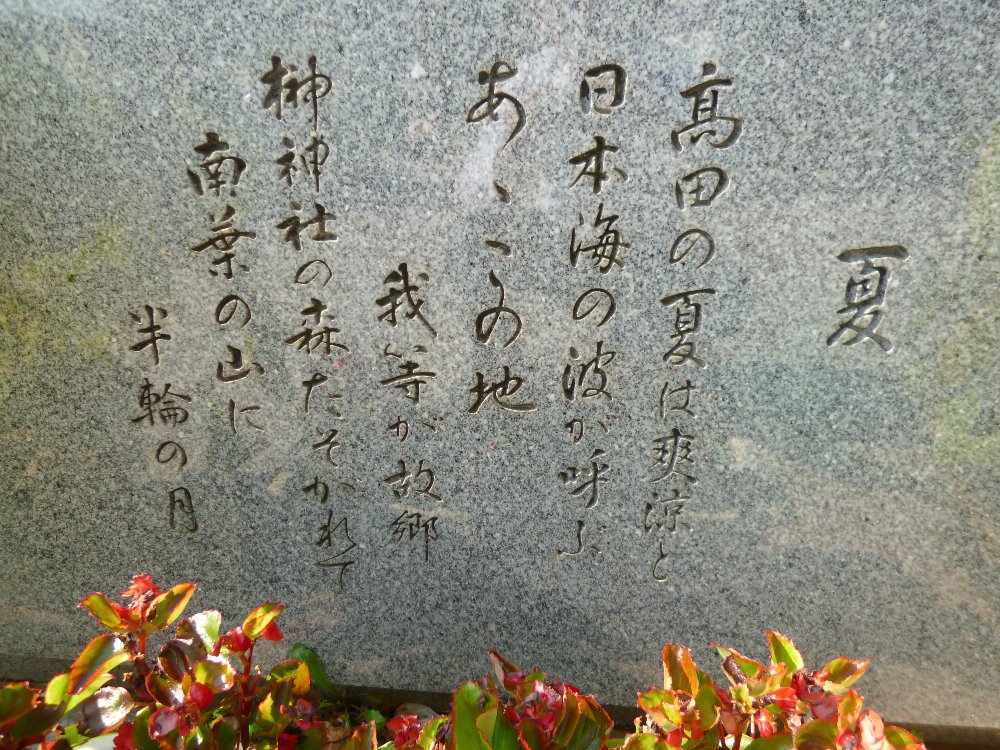 夏
高田の夏は爽涼と
日本海の波が呼ぶ
あゝこの地
我等が故郷
榊神社の森たそがれて
南葉の山に
半輪の月